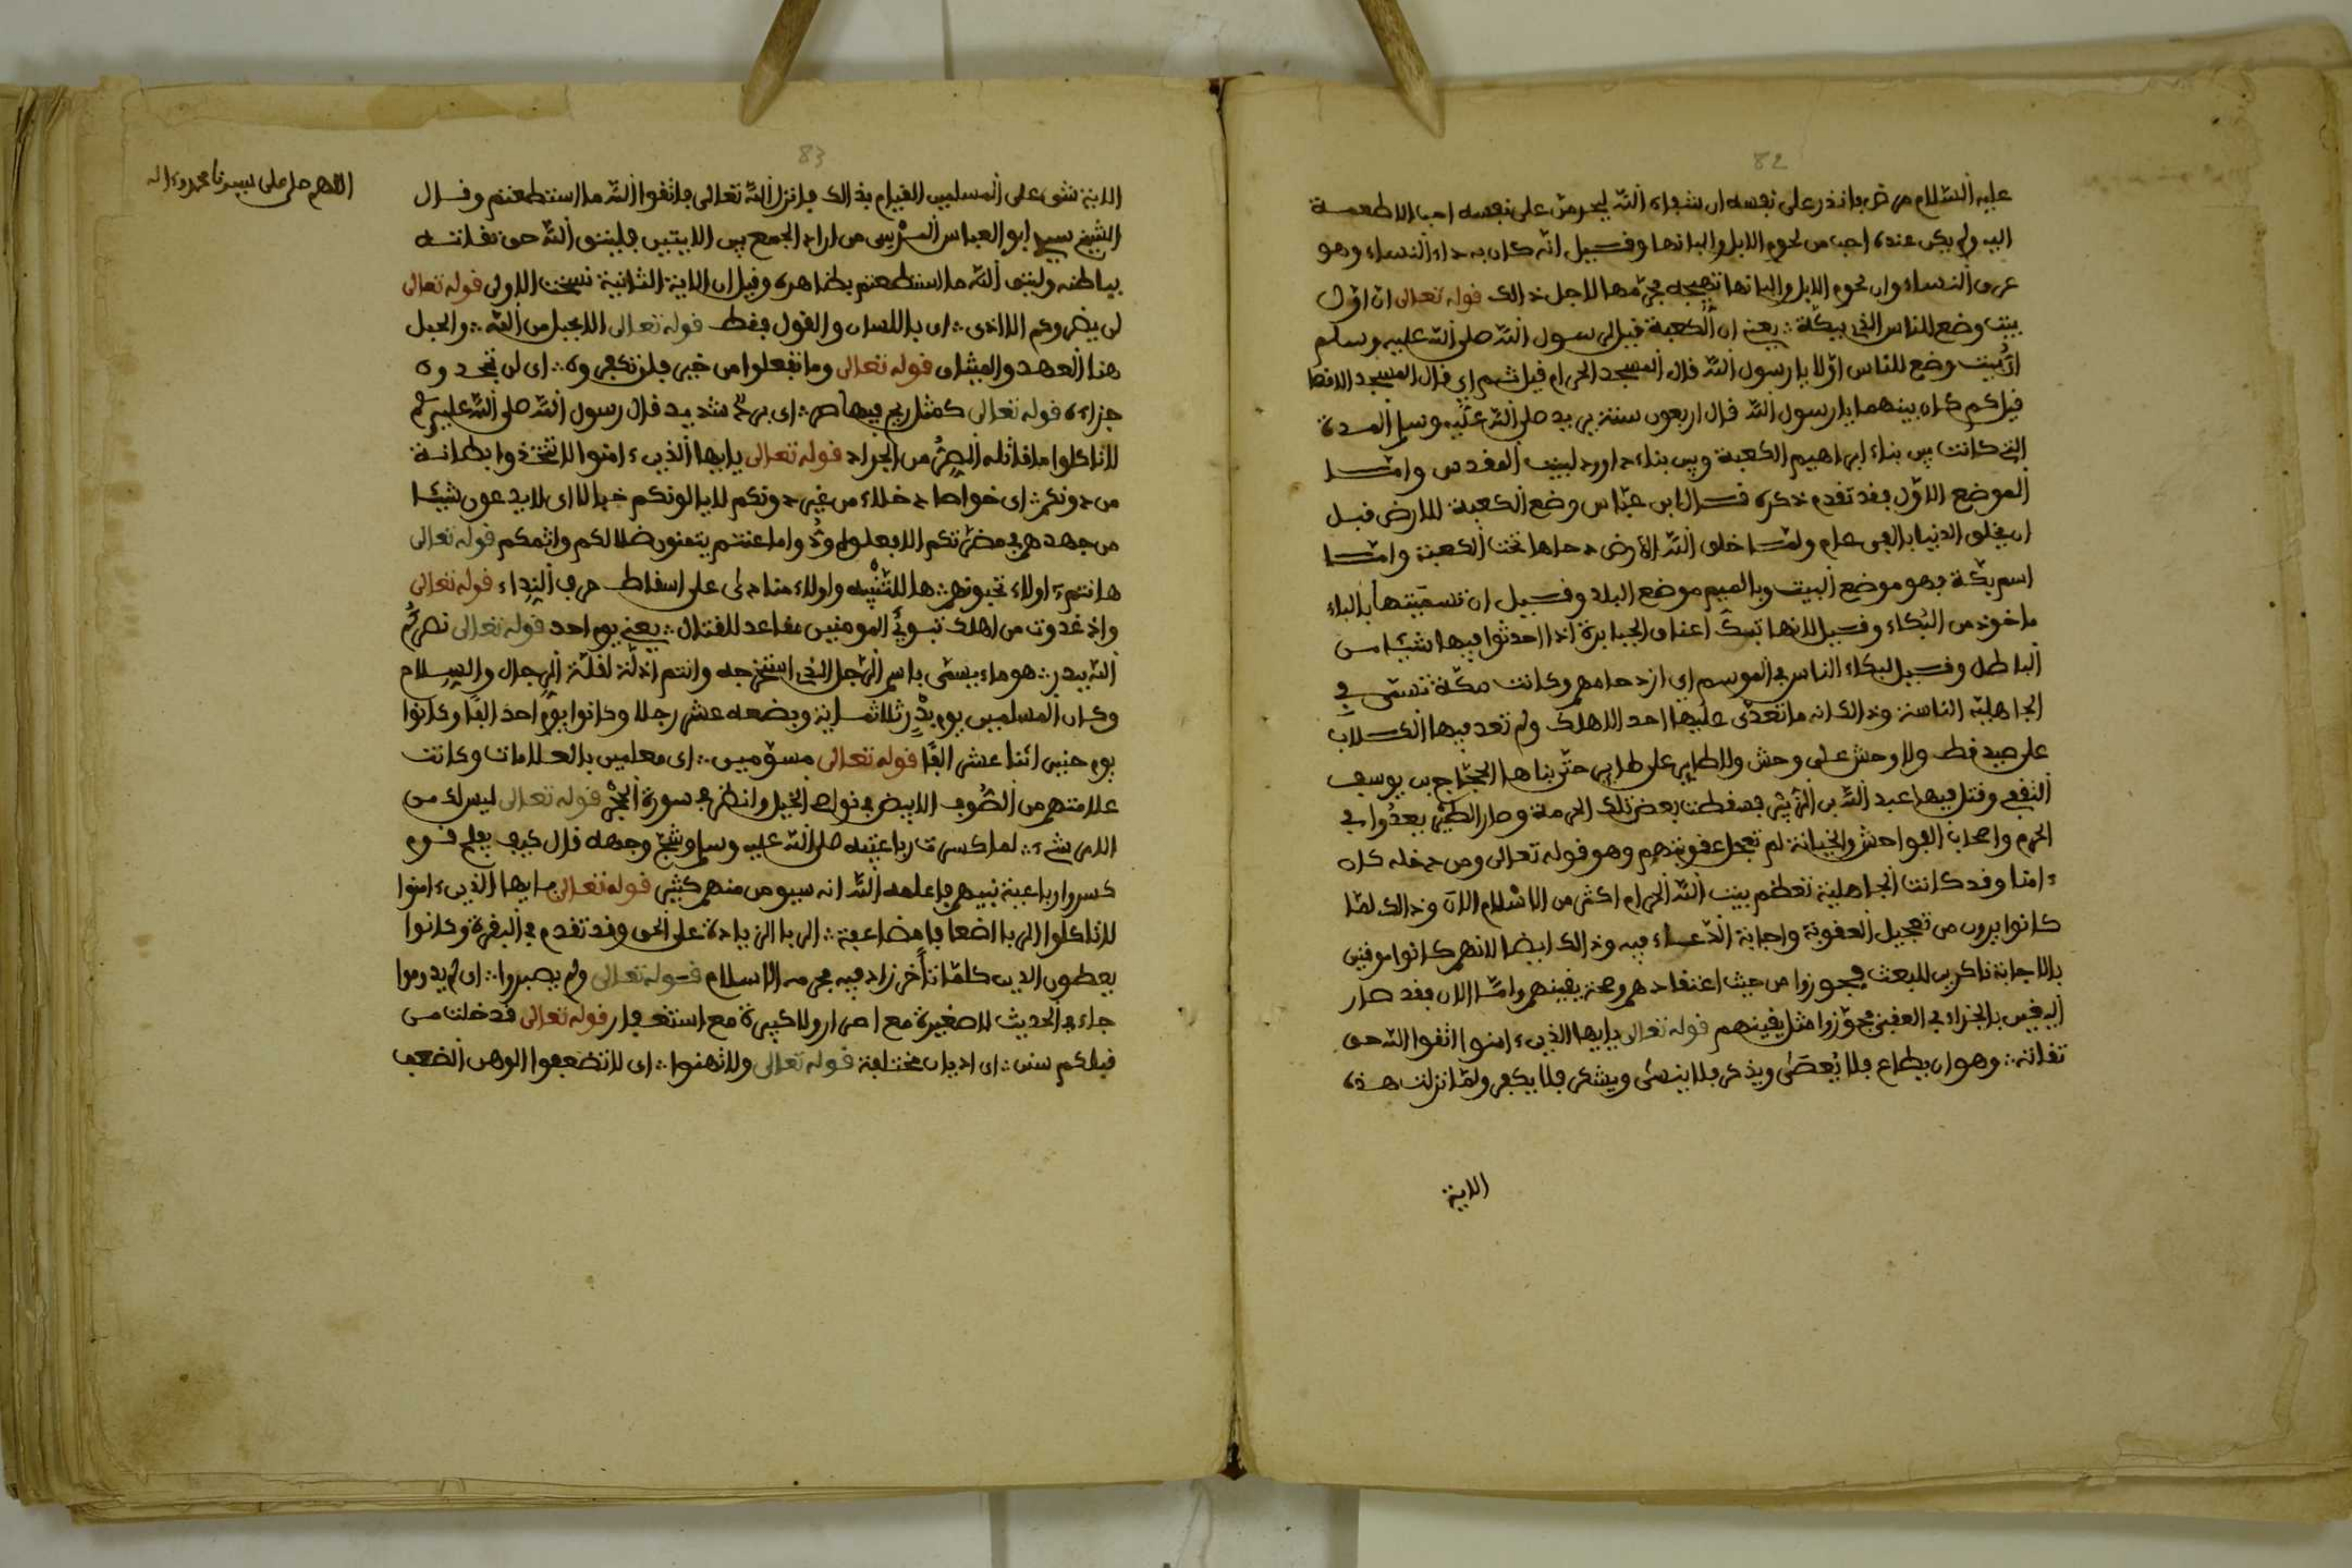 82
عليه السلام مرض فانذر على نفسه ان شفاه الله ليحرمن على نفسه احب الاطعمة
اليه ولم يكن عنده احب من لحوم الابل والبانها وقيل انه كان به داء النساء وهو
عرق النساء وان لحوم الابل والبانها تهيجه فحرمها لاجل ذالك قوله تعالى ان اول
بيت وضع للناس للذي ببكة يعني ان الكعبة قيل لرسول الله صلى الله عليه وسلم
اي بيت وضع للناس اولا يا رسول الله قال المسجد الحرام قيل ثم اي قال المسجد الاقصا
قيل كم كان بينهما يا رسول الله قال اربعون سنة يريد صلى الله عليه وسلم المدة
التي كانت بين بناء ابراهيم الكعبة وبين بناء داوود لبيت المقدس واما
الموضع الاول فقد تقدم ذكره قال ابن عباس وضع الكعبة للارض قبل
ان يخلق الدنيا بالفي عام ولما خلق الله الارض دحاها تحت الكعبة واما
اسم بكة فهو موضع البيت وبالميم موضع البلد وقيل ان تسميتها بالباء
ماخوذ من البكاء وقيل لانها تبك اعناق الجبابرة اذا احدثوا فيها شيئا من
الباطل وقيل لبكاء الناس في الموسم اي ازدحامهم وكانت مكة تسمى في
الجاهلية الناسة وذالك انه ما تعدى عليها احد الا هلك ولم تعد فيها الكلاب
على صيد قط ولا وحش على وحش ولا طاير على طاير حتى بناها الحجاج بن يوسف
الثقفي وقتل فيها عبد الله بن الزبير فسقطت بعض تلك الحرمة وصار الطير يعدوا في
الحرم واصحاب الفواحش والخيانة لم تعجل عقوبتهم وهو قوله تعالى ومن دخله كان
ءامنا وقد كانت الجاهلية تعظم بيت الله الحرام اكثر من الاسلام الان وذالك لما
كانوا يرون من تعجيل العقوبة واجابة الدعاء فيه وذالك ايضا لانهم كانوا موقنين
بالاجابة ناكرين للبعث فيجوزوا من حيث اعتقادهم وصحة يقينهم واما الان فقد صار
اليقين بالجزاء في العقبى فجوزوا مثل يقينهم قوله تعالى يا ايها الذين ءامنوا اتقوا الله حق
تقاته وهو ان يطاع فلا يعصى ويذكر فلا ينسى ويشكر فلا يكفر ولما نزلت هذه
الاية
83
الاية شق على المسلمين القيام بذالك فانزل الله تعالى فاتقوا الله ما استطعتم وقال
الشيخ سيدي ابو العباس المرسي من اراد الجمع بين الايتين فليتق الله حق تقاته
بباطنه وليتق الله ما استطعتم بظاهره وقيل ان الاية الثانية نسخت الاولى قوله تعالى
لن يضروكم الا اذى اي باللسان والقول فقط قوله تعالى الا بحبل من الله والحبل
هنا العهد والميثاق قوله تعالى وما تفعلوا من خير فلن تكفروه اي لن تجحدوه
جزاءه قوله تعالى كمثل ريح فيها صر اي برد شديد قال رسول الله صلى الله عليه وسلم
لا تاكلوا ما قاتله الصر من الجراد قوله تعالى يا ايها الذين ءامنوا لا تتخذوا بطانة
من دونكم اي خواصا دخلاء من غير دونكم لا يالونكم خبالا اي لا يدعون شيئا
من جهدهم في مضرتكم الا بعلوه ودوا ما عنتم يتمنون ضلالكم واثمكم قوله تعالى
هانتم اولاء تحبونهم ها للتنبيه واولاء منادى على اسقاط حرف النداء قوله تعالى
واذ غدوت من اهلك تبوئ المومنين مقاعد للقتال يعني يوم احد قوله تعالى نصركم
الله ببدر هو ماء يسمى باسم الرجل الذي استخرجه وانتم اذلة لقلة الرجال والسلاح
وكان المسلمين يوم بدر ثلاثماية وبضعه عشر رجلا وكانوا يوم احد الفا وكانوا
يوم حنين اثنا عشر الفا قوله تعالى مسومين اي معلمين بالعلامات وكانت
علامتهم من الصوف الابيض في نواصي الخيل وانظر في سورة الحجر قوله تعالى ليس لك من
الامر شيء لما كسرت رباعيته صلى الله عليه وسلم وشج وجهه قال كيف يفلح قوم
كسروا رباعية نبيهم فاعلمه الله انه سيومن منهم كثير قوله تعالى يا ايها الذين ءامنوا
لا تاكلوا الربا اضعافا مضاعفة الربا الزيادة على الحق وقد تقدم في البقرة وكانوا
يعطون الدين كلما تاخر زاد فيه فحرمه الاسلام قوله تعالى ولم يصروا اي لم يدوموا
جاء في الحديث لا صغيرة مع اصرار ولا كبيرة مع استغفار قوله تعالى قد خلت من
قبلكم سنن اي اديان مختلفة قوله تعالى ولا تهنوا اي لا تضعفوا الوهن الضعف
اللهم صل على سيدنا محمد وءاله